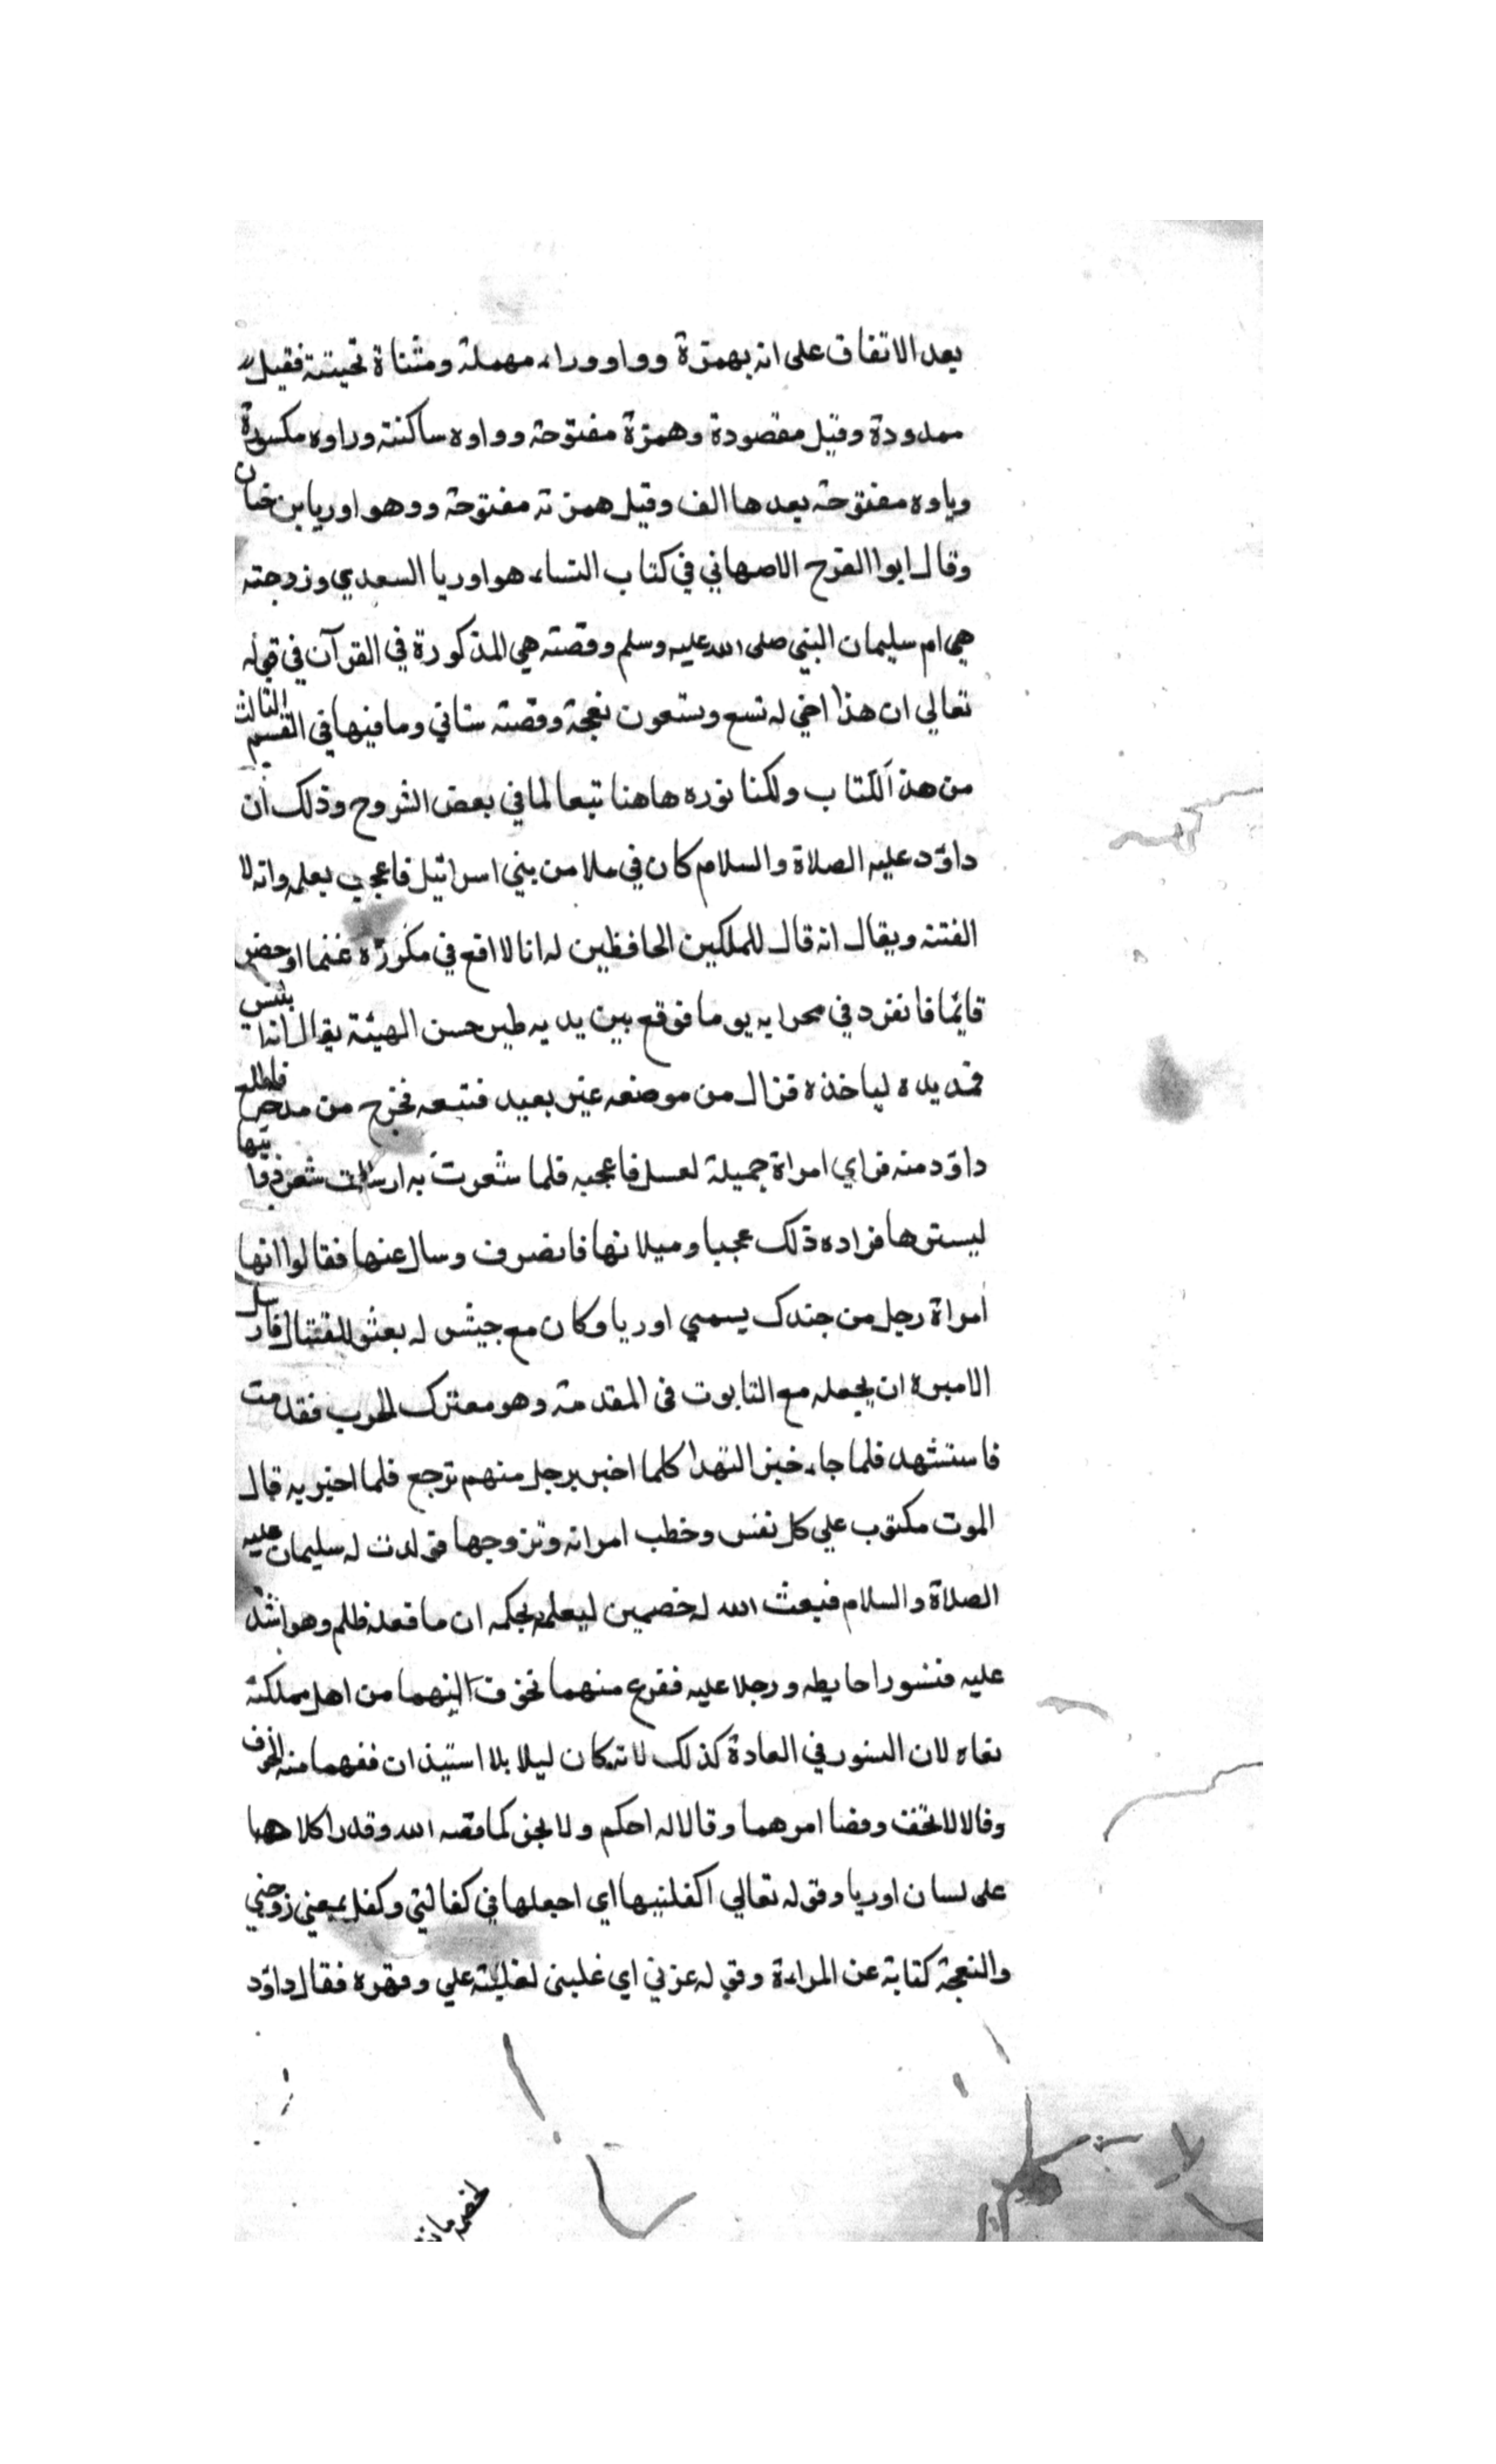 بعد الاتفاق على انه بهمزة وواو وراء مهملة ومثناة تحيتة فقيل
ممدودة وقيل مقصودة وهمزة مفتوحة وواوه ساكنة وراوه مكسورة
وياوه مفتوحة بعدها الف وقيل همزته مفتوحة ووهو اوريا بن حنان
وقال ابوا الفرح الاصهاني في كتاب النساء هو اوريا السعدي وزوجته
هي ام سليمان البني صلى الله عليه وسلم وقصته هي المذكورة في القرآن في قوله
تعالي ان هذا اخي له تسع وتسعون نعجة وقصته ستاتي وما فيها في القسم الثالث
من هذ الكتاب ولكنا نورده هاهنا تبعا لما في بعض الشروح وذلك أن
داوٓد عليه الصلاة والسلام كان في ملا من بني اسرائيل فاعجب بعلمه وانه لا
الفتنه ويقال انه قال للملكين الحافظين له انا لا اقع في مكروه غنما اوحض
قايما فانفرد في محرابه يوما فوقع بين يديه طير حسن الهيئة يقال انه ابليس
فمد يده لياخذه فزال من موضعه غير بعيد فتبعه فخرج من مدخر فاطلع
داوٓد منه فراي امراة جميلة لعسل فاعجبه فلما شعرت به ارسالت شعر ذوايتها
ليسترها فزاده ذلك عجبا وميلانها فانصرف وسال عنها فقالوا انها
امراة رجل من جندك يسمي اوريا وكان مع جيش له بعثه للقتال فارسل
الاميره ان يجعله مع التابوت في المقدمة وهو معترك الحرب فقدمت
فاستشهد فلما جاء خبر التهدا كلما اخبر برجل منهم ترجع فلما اخبر به قال
الموت مكتوب علي كل نفس وخطب امراته وتزوجها فولدت له سليمان عليه
الصلاة والسلام فبعث الله له خصمين ليعلمه بحكمه ان ما فعله ظلم وهو اشد
عليه فتسورا حايطه ورجلا عليه ففرع منهما تخوفا انهما من اهل مملكته
بغاه لان السنور في العادة كذلك لانه كان ليلا بلا استيذان ففهما منه الخوف
وقالا لا تخف وقضا امرهما وقالا له احكم ولا تجر كما قصه الله وقدرا كلاهما
على لسان اوريا وقوله تعالي اكفلنيها اي اجعلها في كفالتي وكفل بمعني زوجني
والنعجة كناية عن المراءة وقوله عزني اي غلبني لغلبته علي وقهره فقال داوٓد